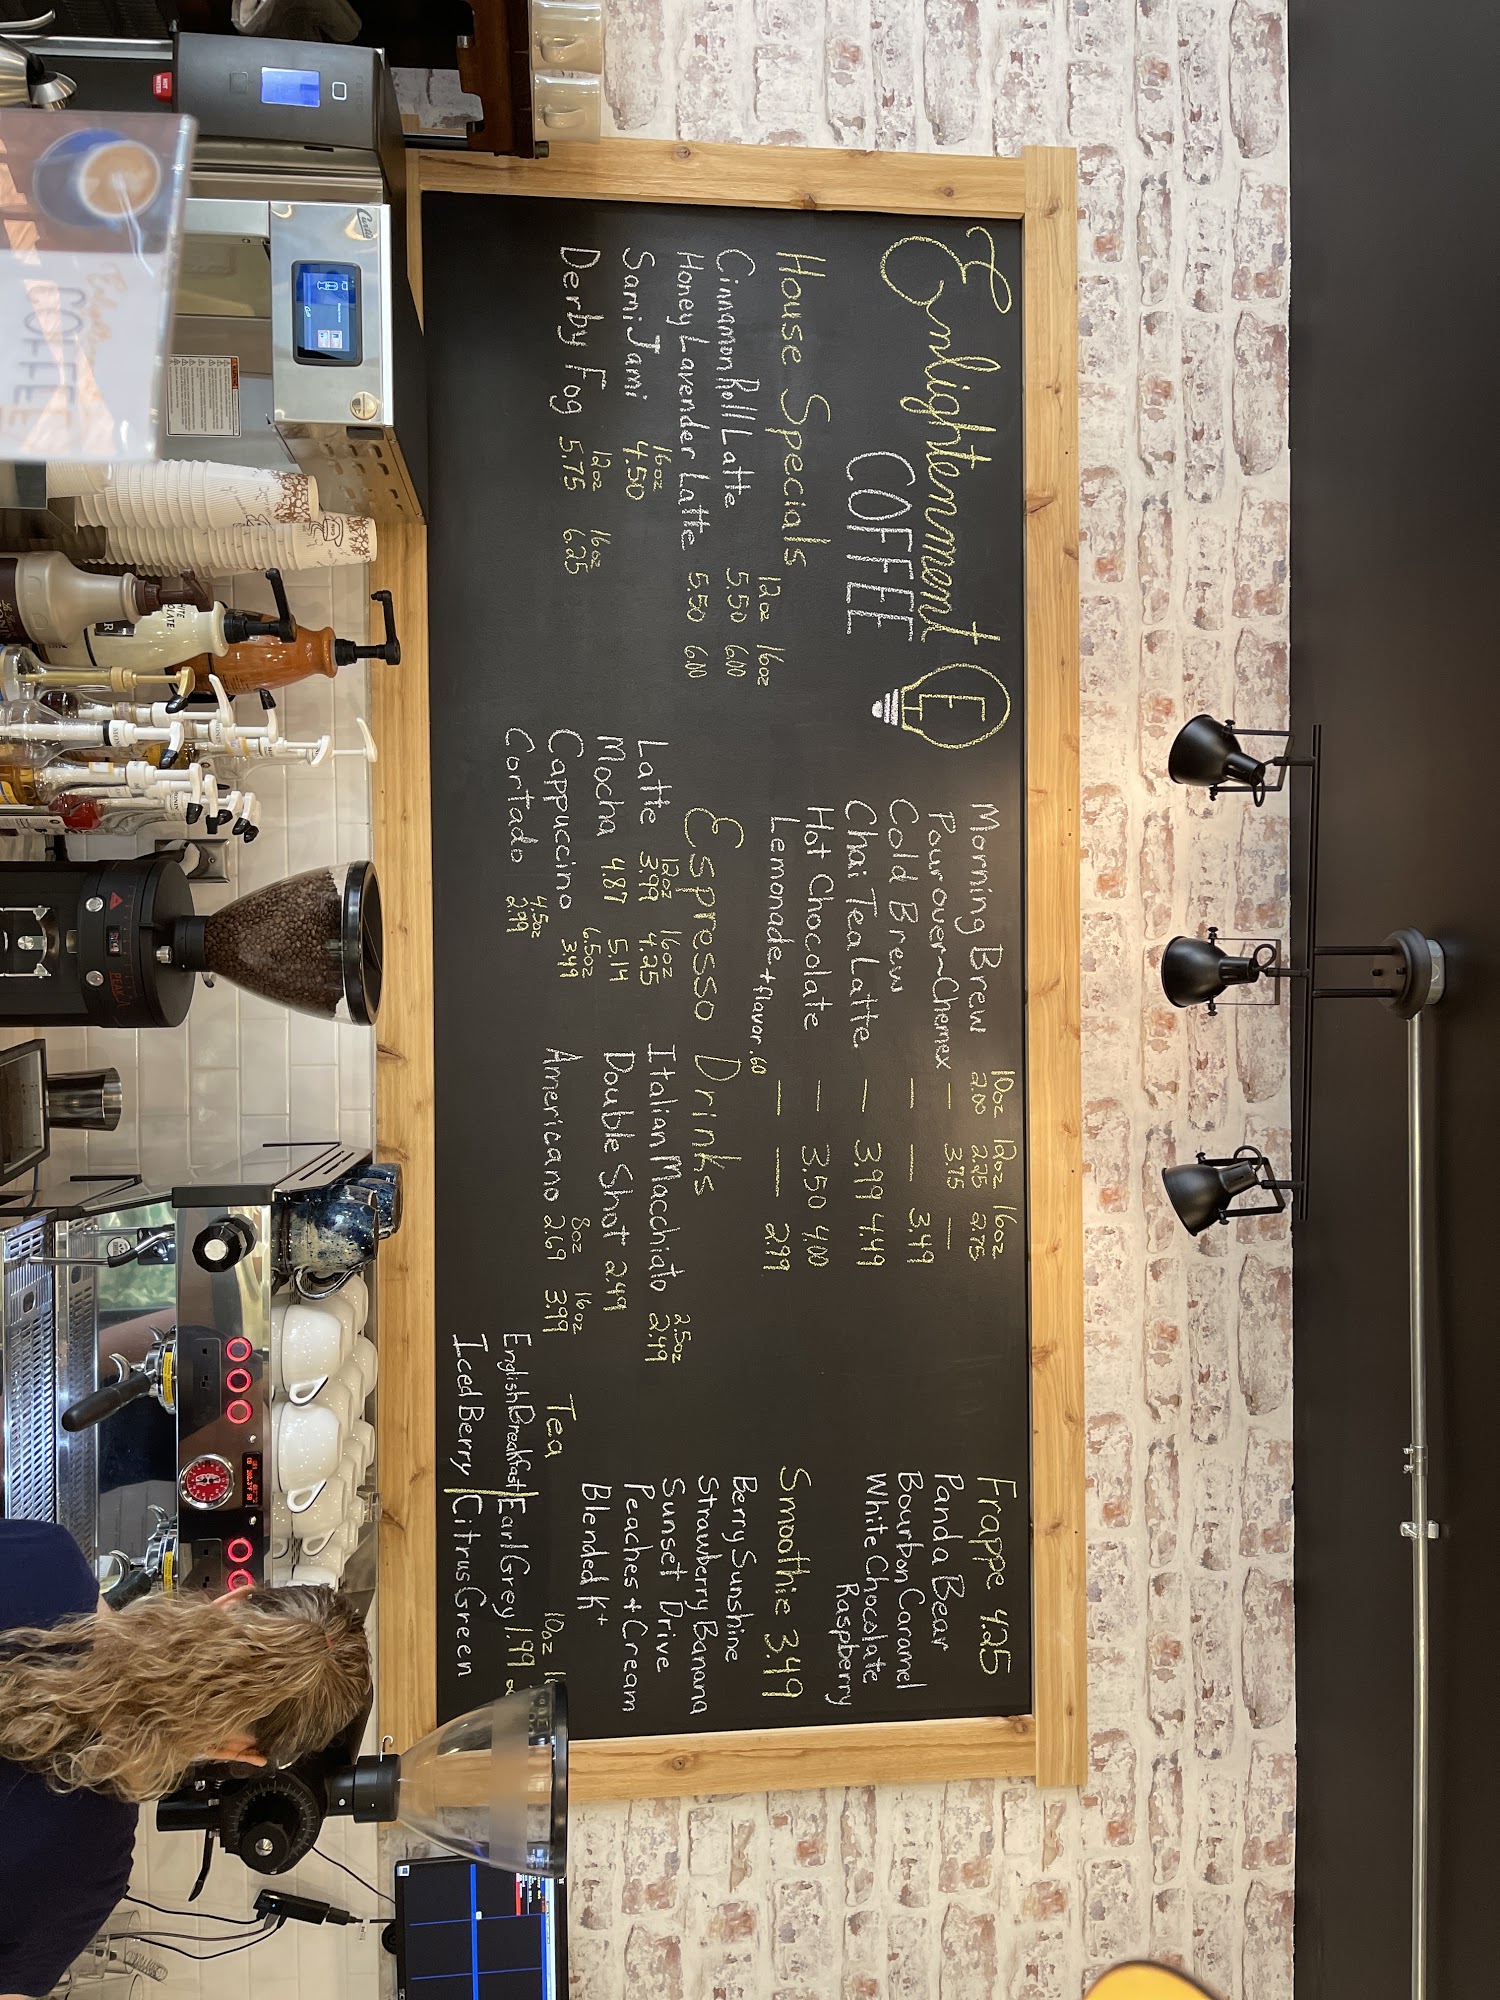 Enlightenment
COFFEE
E
House Specials
12oz 16oz
Cinnamon Roll Latte 5.50 6.00
Honey Lavender Latte 5.50 6.00
16oz
Sami Jami 4.50
12oz 16oz
Derby Fog 5.75 6.25
10oz 12oz 16oz
Morning Brew 2.00 2.25 2.75
Pourover~Chemex — 3.75 —
Cold Brew — — 3.49
Chai Tea Latte — 3.99 4.49
Hot Chocolate — 3.50 4.00
Lemonade +flavor .60 — — 2.99
Espresso Drinks
12oz 16oz
Latte 3.99 4.25
Mocha 4.87 5.14
6.5oz
Cappuccino 3.49
4.5oz
Cortado 2.99
2.5oz
Italian Macchiato 2.49
Double Shot 2.49
8oz 16oz
Americano 2.69 3.99
Frappe 4.25
Panda Bear
Bourbon Caramel
White Chocolate
Raspberry
Smoothie 3.49
Berry Sunshine
Strawberry Banana
Sunset Drive
Peaches + Cream
Blended K+
Tea 10oz
English Breakfast|Earl Grey 1.99
Iced Berry|Citrus Green
COFFEE
Curtis
HOT WATER
PEAK